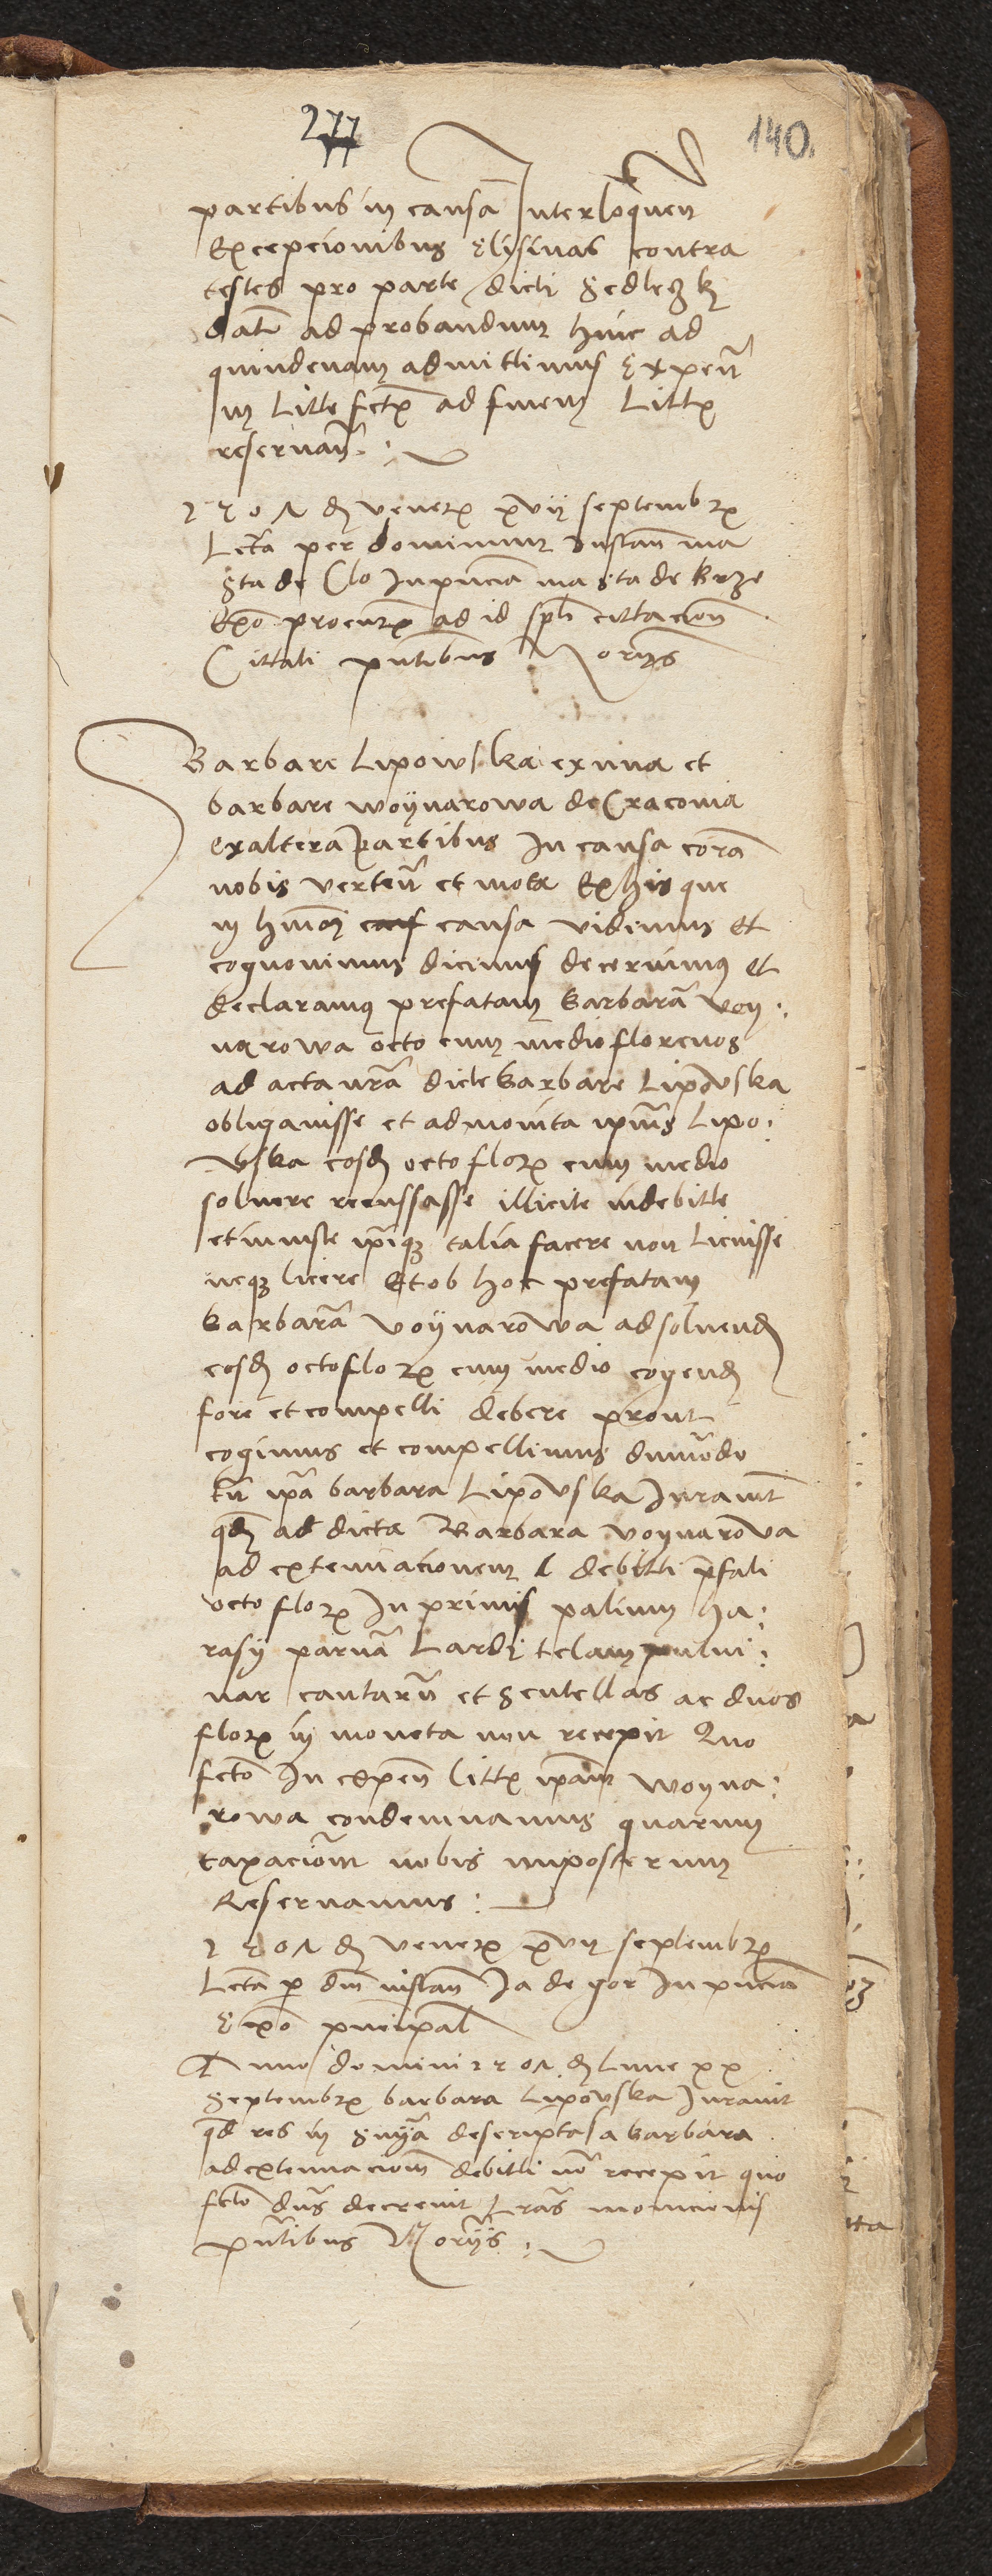 277
140.
partibus in causa Interloquen
Excepcionibus Elisivas contra
testes pro parte dicti Sedleczky
dat ad probandum hinc ad
quindenam admittimus Expen
in Litte fctꝫ ad finem Litte
reservan :
1507 die venerꝫ xvij septembrꝫ
Lcta per dominum Instan ma
gra de Clo In pncia magra de Brze
Exo procurꝫ ad id spli cittacion
Cittati pntibus Norijs
Barbare Lipowska ex una et
barbare woynarowa de Cracovia
ex altera partibus In causa cora
nobis verten et mota Ex his que
in hmoi causa vidimus Et
cognovimus dicimus decernimus et
declaramus prefatam barbara voy :
narowa octo cum medio florenos
ad acta nra dicte barbare Lipovska
obligavisse et ad monita ipius Lipo :
vska eosd octo florꝫ cum medio
solvere recussasse illicite indebitte
et iniuste ipiqꝫ talia facere non Licuisse
neqꝫ licere Et ob hoc prefatam
barbara voynarowa ad solvend
eosd octo florꝫ cum medio cogend
fore et compelli debere prout
cogimus et compellimus dummodo
tn ipa barbara Lipovska Iuraverit
qd ad dicta Barbara voynarova
ad extenuacionem debitti pfati
octo florꝫ In primis palium ha :
rasy parva Lardi telam pulvi :
nar cantaru et scutellas ac duos
florꝫ in moneta non recepit Quo
fcto In expen littꝫ ipam woyna :
rowa condemnamus quarum
taxaciom nobis imposterum
Reservamus :
1507 die venerꝫ xvij septembrꝫ
Lcta p dm instan Ja de gor In pncia
Exo pncipal
Anno domini 1507 die Lune xx
septembrꝫ barbara Lipovska Iuravit
qd res in snia descriptas a barbara
ad extenuaciom debitti no recepit quo
fcto dns decrevit Lras monicionis
pntibus Norijs :